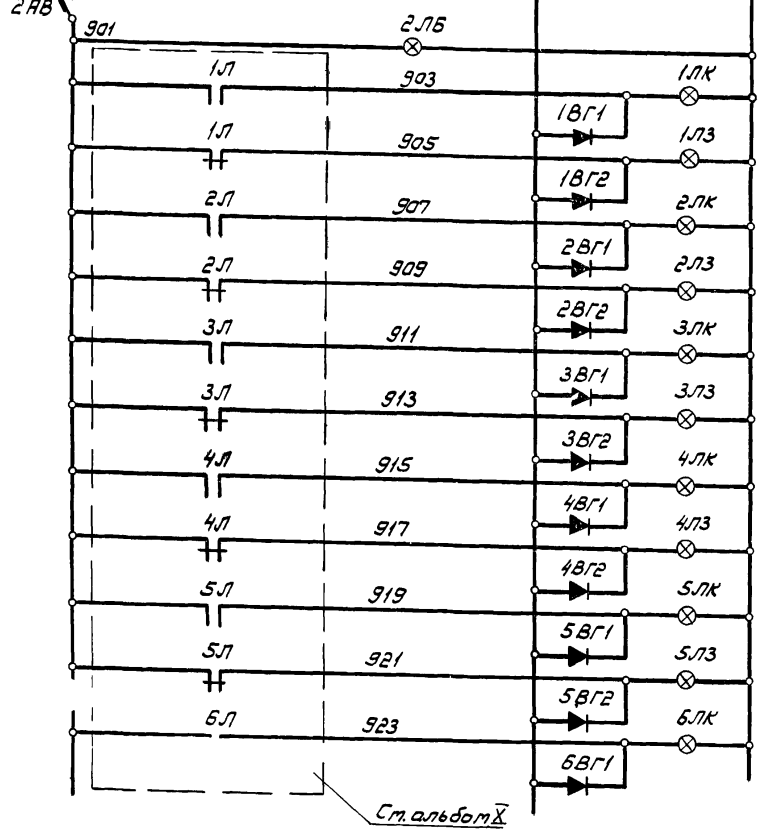 2АВ
901 2ЛБ
1Л 903 1ЛК
1ВГ1
1Л 905 1ЛЗ
1ВГ2
2Л 907 2ЛК
2ВГ1
2Л 909 2ЛЗ
2ВГ2
3Л 911 3ЛК
3ВГ1
3Л 913 3ЛЗ
3ВГ2
4Л 915 4ЛК
4ВГ1
4Л 917 4ЛЗ
4ВГ2
5Л 919 5ЛК
5ВГ1
5Л 921 5ЛЗ
5ВГ2
6Л 923 6ЛК
6ВГ1
См. альбом X